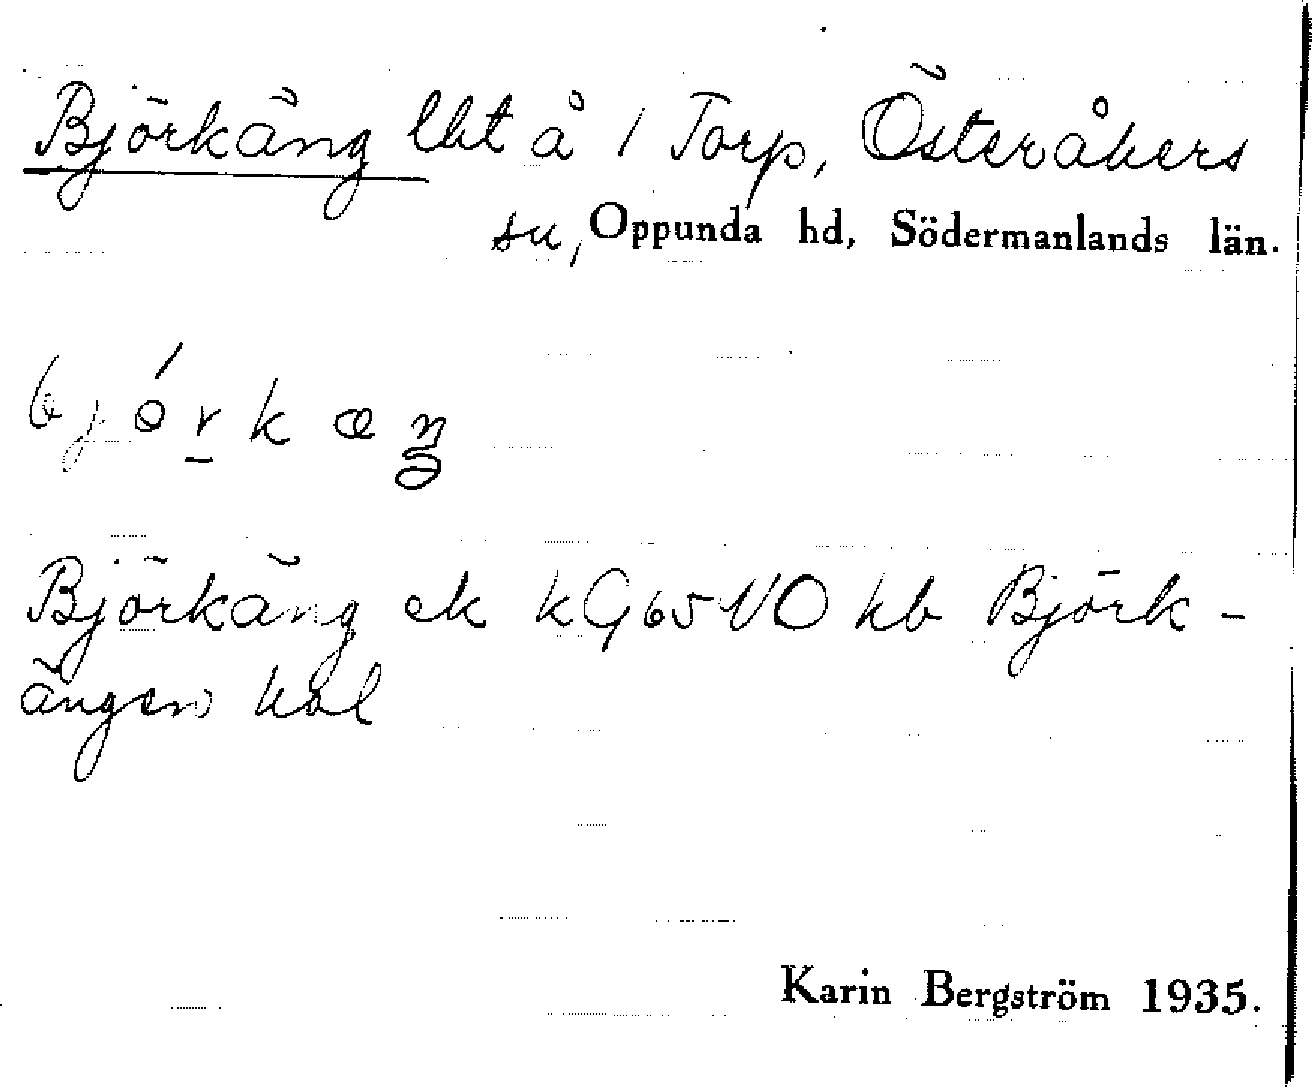 Björkäng lht å 1 Torp, Österåkers
sn, Oppunda hd, Södermanlands län.
Björkäng ek kG65NO hb Björk-
ängen hal
Karin Bergström 1935.